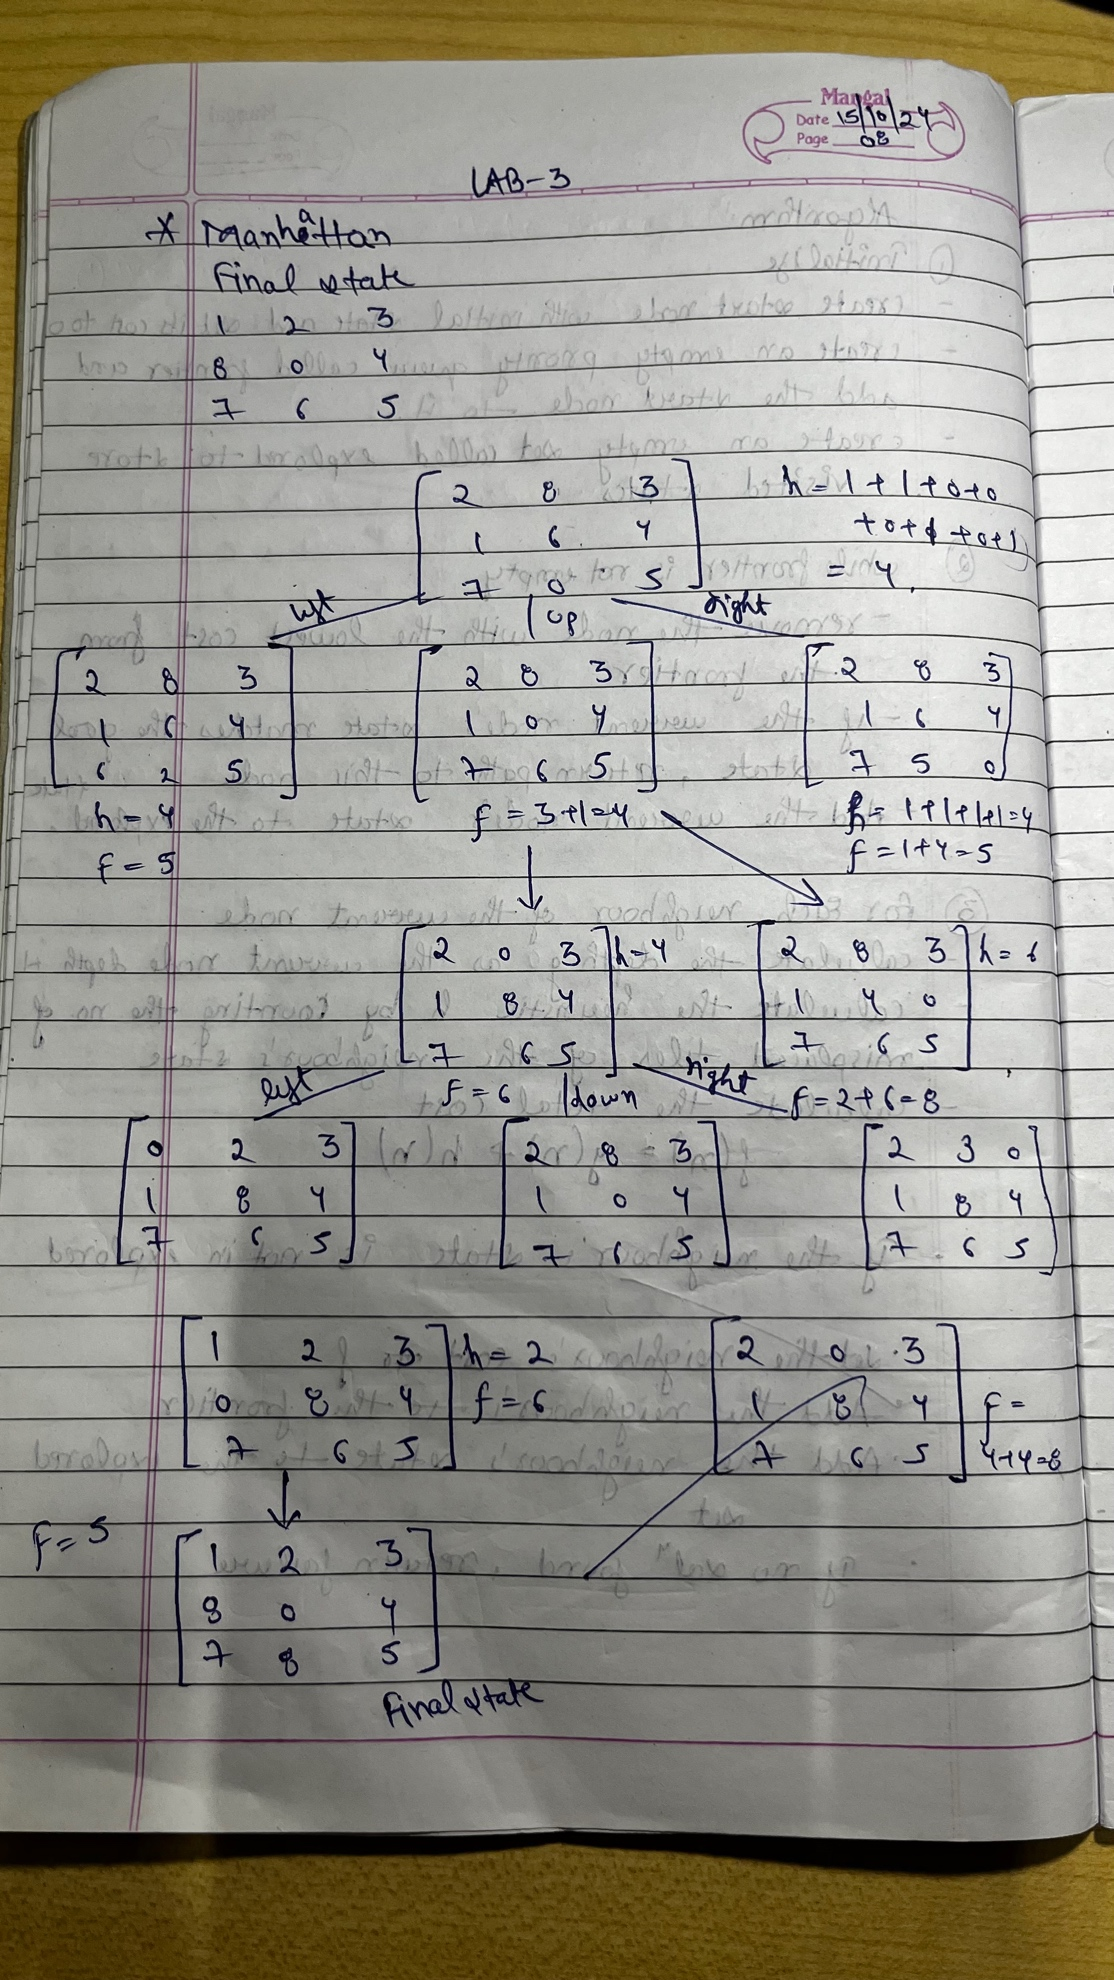 Mangal
Date 15/10/24
Page 08
LAB-3
* Manhattan
Final state
1 2 3
8 0 4
7 6 5
2 8 3
1 6 4
7 0 5
h = 1 + 1 + 0 + 0
+ 0 + 1 + 0 + 1
= 4
left
up
right
2 8 3
1 6 4
6 2 5
h = 4
f = 5
2 8 3
1 0 4
7 6 5
f = 3+1=4
2 8 3
1 6 4
7 5 0
h = 1+1+1+1=4
f = 1+4=5
2 0 3
1 8 4
7 6 5
h=4
f = 6
2 8 3
1 4 0
7 6 5
h = 6
f = 2+6=8
left
down
right
0 2 3
1 8 4
7 6 5
2 8 3
1 0 4
7 6 5
2 3 0
1 8 4
7 6 5
1 2 3
0 8 4
7 6 5
h = 2
f = 6
2 0 3
1 8 4
7 6 5
f =
4+4=8
f = 5
1 2 3
8 0 4
7 8 5
Final state